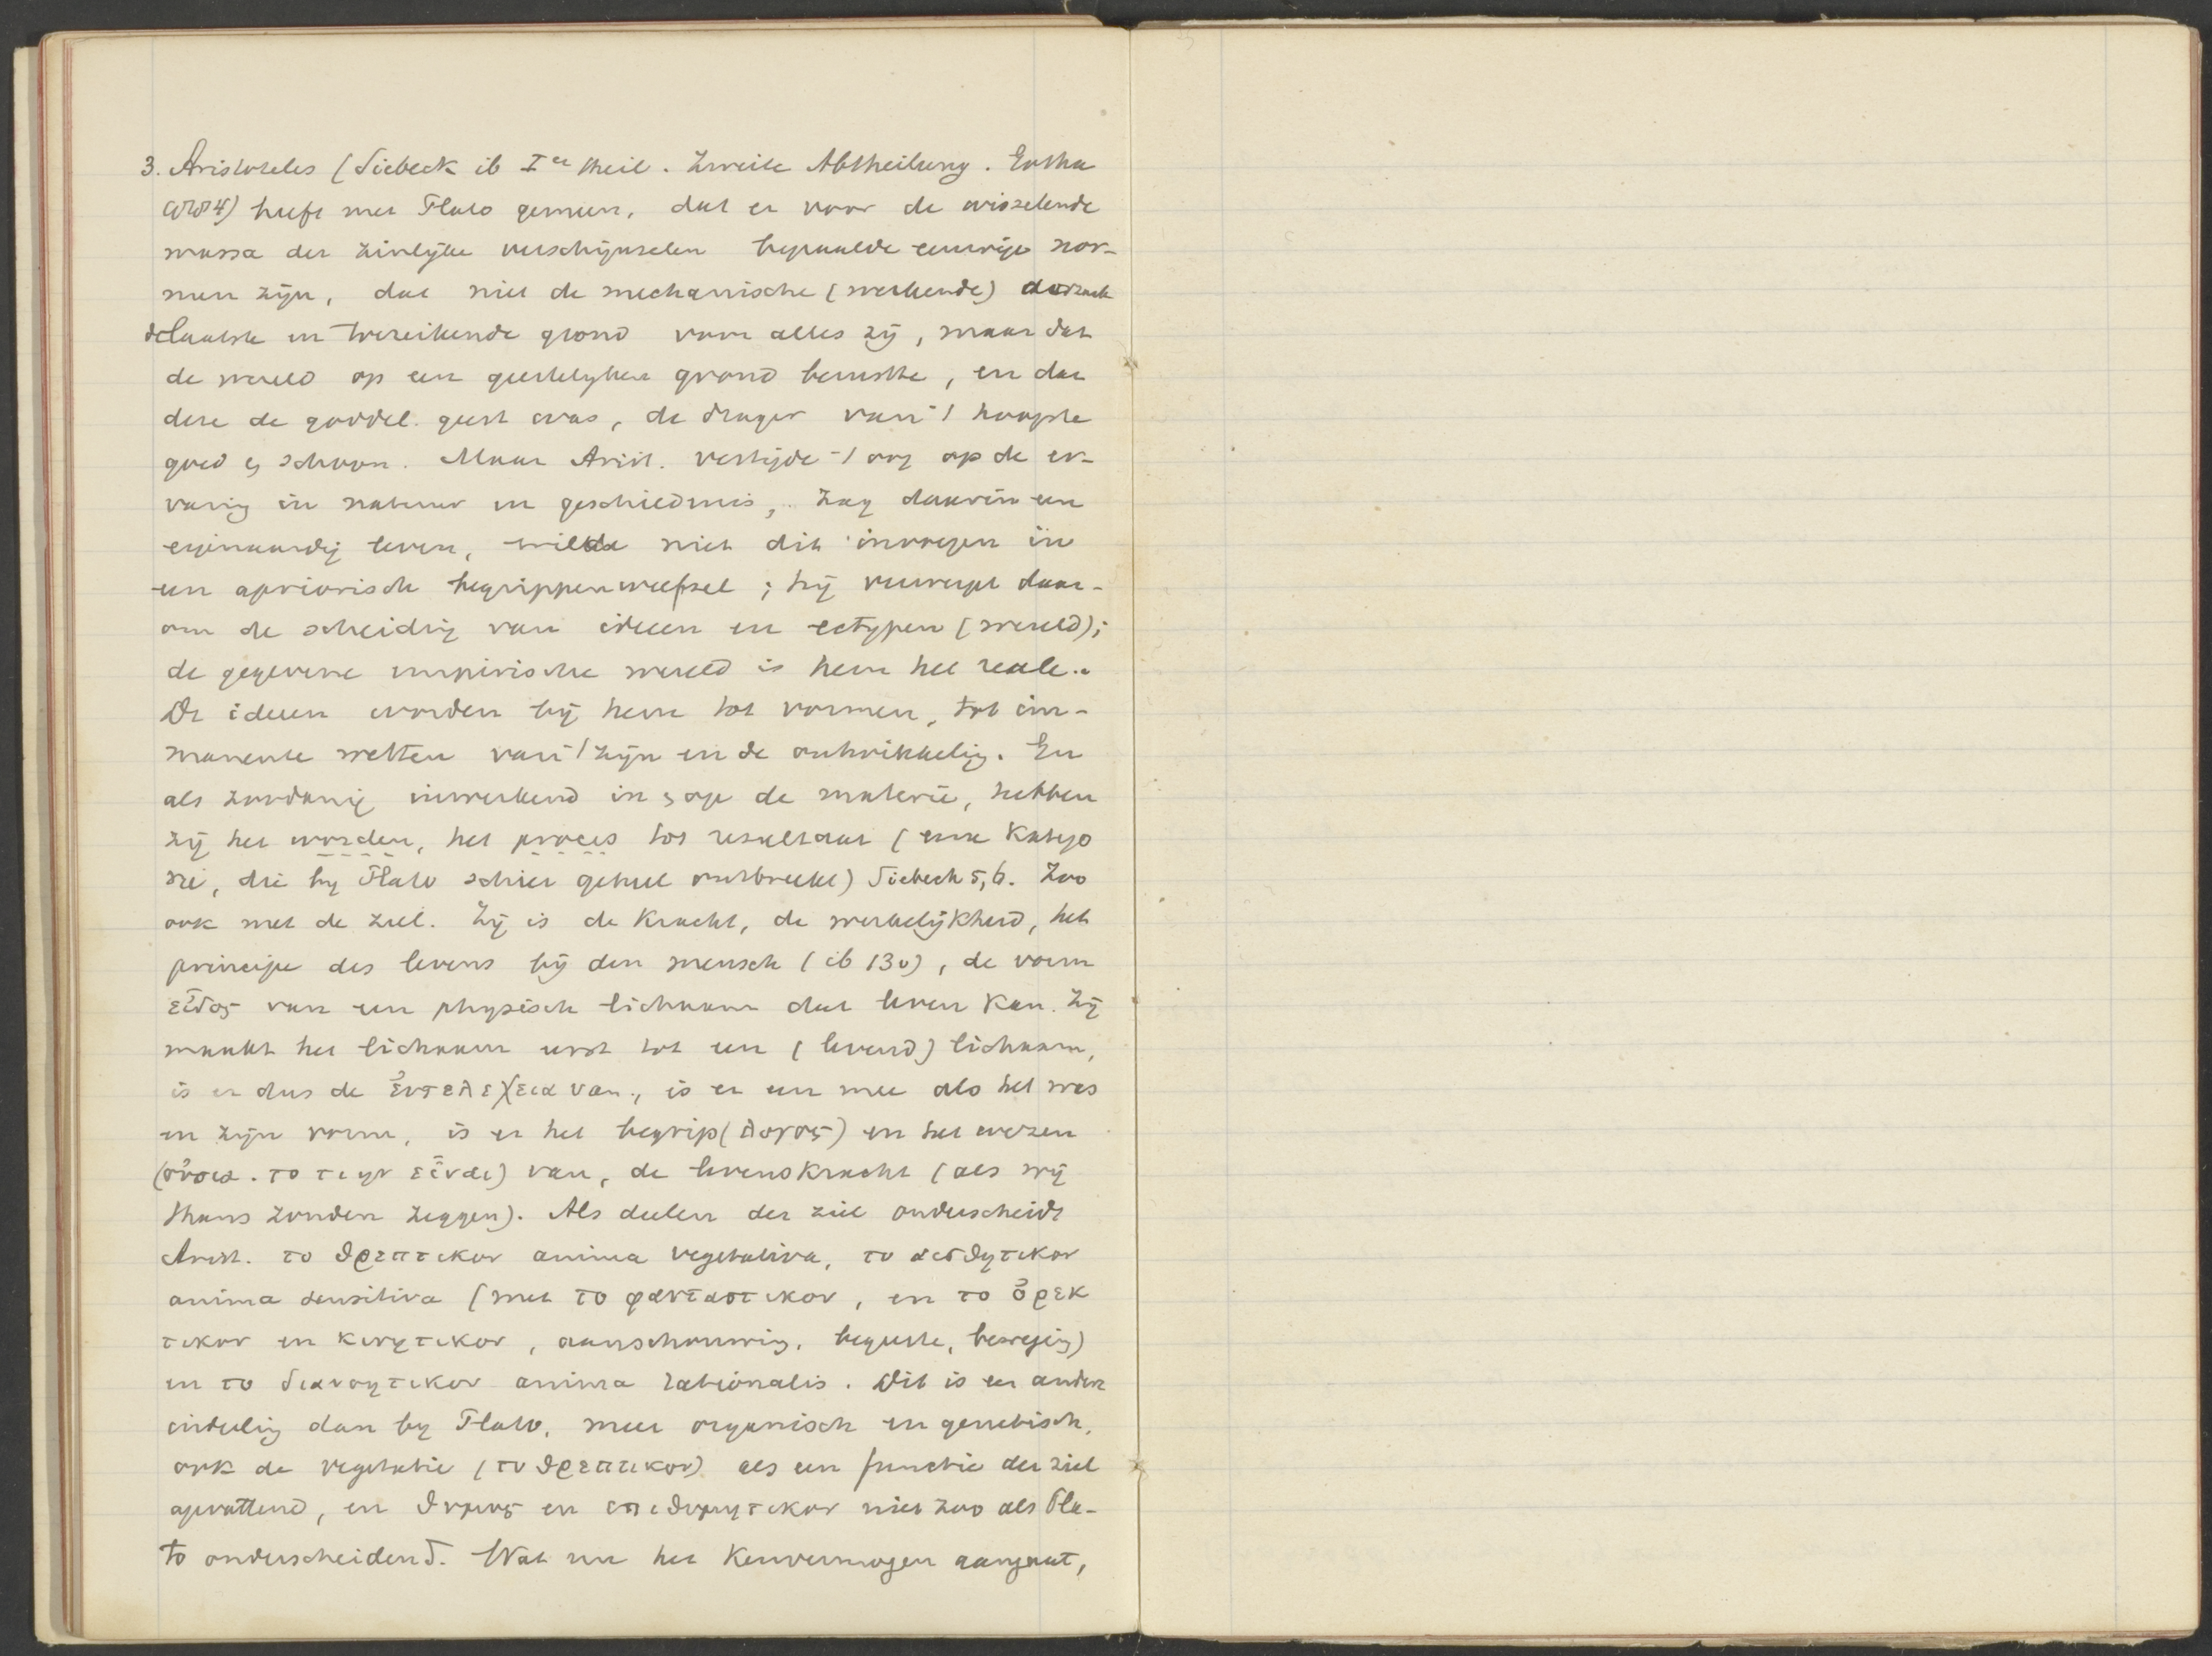 3. Aristoteles (Siebeck ib I er Theil. Zweite Abtheilung. Gotha
1884) heeft met Plato gemeen, dat er voor de wisselende
massa der zinlijke verschijnselen bepaalde eeuwige nor-
men zijn, dat niet de mechanische (werkende) oorzaak
de laatste en toereikende grond van alles zij, maar dat
de wereld op een geestelyken grond berustte, en dat
deze de goddel. geest was, de drager van 't hoogste
goed & schoon. Maar Arist. vestigde 't oog op de er-
varing in natuur en geschiedenis, zag daarin een
eigenaardig leven, wilde niet dit invoegen in
een apriorisch begrippenweefsel; hij verwerpt daar-
om de scheiding van ideeen en ectypen (wereld);
de gegevene empirische wereld is hem het reale.
De ideeen worden bij hem tot vormen, tot im-
manente wetten van 't zijn en de ontwikkeling. En
als zoodanig inwerkend in & op de materie, hebben
zij het worden, het proces tot resultaat (eene Katego
rie, die by Plato schier geheel ontbreekt) Siebeck 5,6. Zoo
ook met de ziel. Zij is de Kracht, de werkelijkheid, het
principe des levens bij den mensch (ib 130), de vorm
εἶδος van een physisch lichaam dat leven kan. Zij
maakt het lichaam eerst tot een (levend) lichaam,
is er dus de ἐντελεχεια van, is er een mee als het was
en zijn vorm, is er het begrip (λογος) en het wezen
(οὐσια. το τι ην εἶναι) van, de levenskracht (als wij
thans zouden zeggen). Als deelen der ziel onderscheidt
Arist. το θρεπτικον anima vegetativa, το αισθητικον
anima sensitiva (met το φανταστικον, en το ὀρεκ
τικον en κινητικον, aanschouwing, begeerte, beweging)
en το διανοητικον anima rationalis. Dit is een andere
indeeling dan by Plato, meer organisch en genetisch,
ook de vegetatie (το θρεπτικον) als een functie der ziel
opvattend, en θυμος en επιθυμητικον niet zoo als Pla-
to onderscheidend. Wat nu het Kenvermogen aangaat,